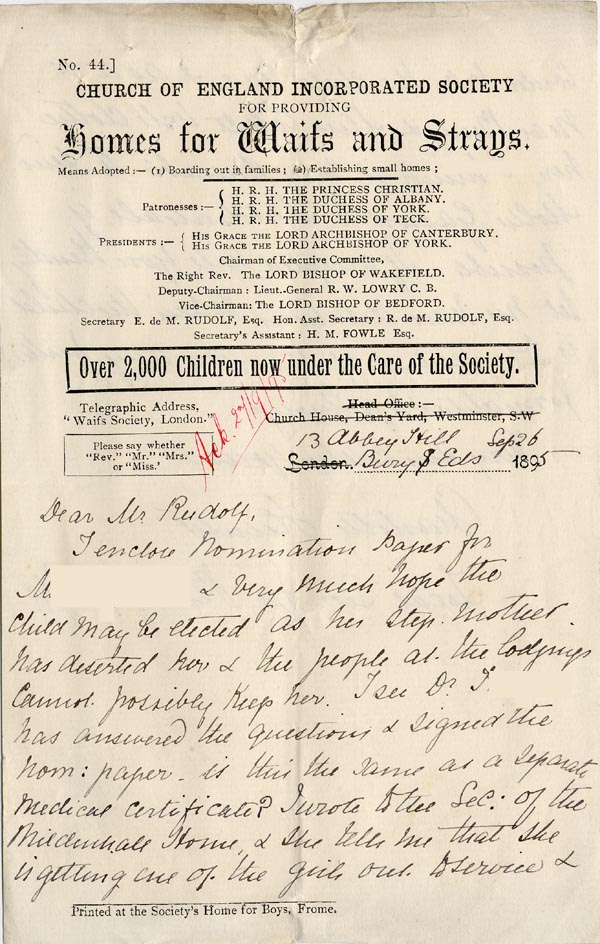 No. 44.]
CHURCH OF ENGLAND INCORPORATED SOCIETY
FOR PROVIDING
Homes for Waifs and Strays.
Means Adopted :— (1) Boarding out in families ; (2) Establishing small homes ;
Patronesses :—
H. R. H. THE PRINCESS CHRISTIAN.
H. R. H. THE DUCHESS OF ALBANY.
H. R. H. THE DUCHESS OF YORK.
H. R. H. THE DUCHESS OF TECK.
PRESIDENTS :—
HIS GRACE THE LORD ARCHBISHOP OF CANTERBURY.
HIS GRACE THE LORD ARCHBISHOP OF YORK.
Chairman of Executive Committee,
The Right Rev. The LORD BISHOP OF WAKEFIELD.
Deputy-Chairman : Lieut.-General R. W. LOWRY C. B.
Vice-Chairman: The LORD BISHOP OF BEDFORD.
Secretary E. de M. RUDOLF, Esq. Hon. Asst. Secretary : R. de M. RUDOLF, Esq.
Secretary's Assistant : H. M. FOWLE Esq.
Over 2,000 Children now under the Care of the Society.
Telegraphic Address,
"Waifs Society, London."
Please say whether
"Rev." "Mr." "Mrs."
or "Miss.'
Ack. 27/9/95
Head Office :—
Church House, Dean's Yard, Westminster, S.W
13 Abbey Hill Sep 26
London. Bury S Eds 1895
Dear Mr Rudolf,
I enclose Nomination Paper for
M. & very much hope the
child may be elected as her step-mother
has deserted her & the people at the lodgings
cannot possibly keep her. I see Dr. T.
has answered the questions & signed the
nom: paper - is this the same as a separate
medical certificate? I wrote to the Sec: of the
Mildenhall Home, & she tells me that she
is getting one of the girls out to service &
Printed at the Society's Home for Boys, Frome.